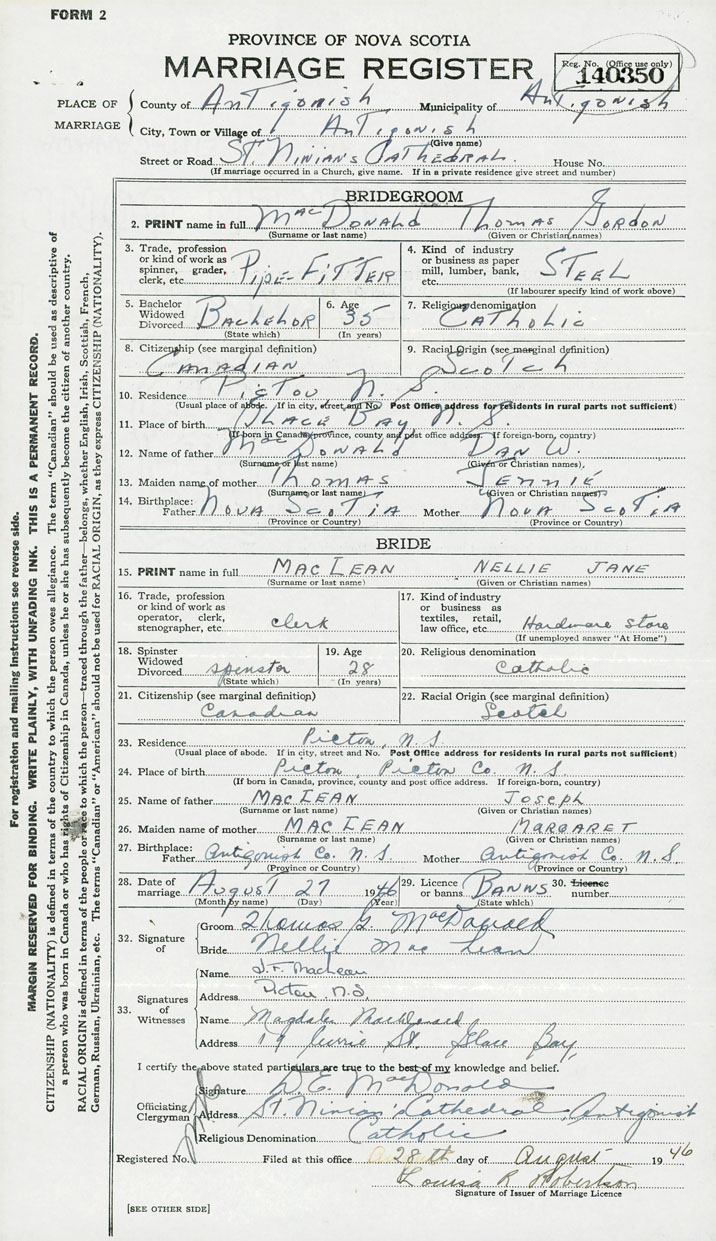 FORM 2
PROVINCE OF NOVA SCOTIA
MARRIAGE REGISTER
Reg. No. (Office use only)
140350
PLACE OF MARRIAGE
County of Antigonish Municipality of Antigonish
City, Town or Village of Antigonish
(Give name)
Street or Road St. Ninian's Cathedral. House No.
(If marriage occurred in a Church, give name. If in a private residence give street and number)
BRIDEGROOM
2. PRINT name in full MacDonald Thomas Gordon
(Surname or last name) (Given or Christian names)
3. Trade, profession or kind of work as spinner, grader, clerk, etc. Pipe-Fitter
4. Kind of industry or business as paper mill, lumber, bank, etc. Steel
(If labourer specify kind of work above)
5. Bachelor Widowed Divorced Bachelor
(State which)
6. Age 35
(In years)
7. Religious denomination Catholic
8. Citizenship (see marginal definition) Canadian
9. Racial Origin (see marginal definition) Scotch
10. Residence Pictou N. S.
(Usual place of abode. If in city, street and No. Post Office address for residents in rural parts not sufficient)
11. Place of birth Glace Bay N. S.
(If born in Canada, province, county and post office address. If foreign-born, country)
12. Name of father MacDonald Dan W.
(Surname or last name) (Given or Christian names)
13. Maiden name of mother Thomas Jennie
(Surname or last name) (Given or Christian names)
14. Birthplace: Father Nova Scotia Mother Nova Scotia
(Province or Country) (Province or Country)
BRIDE
15. PRINT name in full MacLean Nellie Jane
(Surname or last name) (Given or Christian names)
16. Trade, profession or kind of work as operator, clerk, stenographer, etc. clerk
17. Kind of industry or business as textiles, retail, law office, etc. Hardware Store
(If unemployed answer "At Home")
18. Spinster Widowed Divorced spinster
(State which)
19. Age 28
(In years)
20. Religious denomination Catholic
21. Citizenship (see marginal definition) Canadian
22. Racial Origin (see marginal definition) Scotch
23. Residence Pictou, N.S
(Usual place of abode. If in city, street and No. Post Office address for residents in rural parts not sufficient)
24. Place of birth Pictou, Pictou Co. N.S.
(If born in Canada, province, county and post office address. If foreign-born, country)
25. Name of father MacLean Joseph
(Surname or last name) (Given or Christian names)
26. Maiden name of mother MacLean Margaret
(Surname or last name) (Given or Christian names)
27. Birthplace: Father Antigonish Co. N.S. Mother Antigonish Co. N.S.
(Province or Country) (Province or Country)
28. Date of marriage August 27 1946
(Month by name) (Day) (Year)
29. Licence or banns Banns
(State which)
30. Licence number
32. Signature of
Groom Thomas G. MacDonald
Bride Nellie MacLean
33. Signatures of Witnesses
Name J.F. MacLean
Address Pictou, N.S.
Name MacDonald
Address 19 Currie St. Glace Bay,
I certify the above stated particulars are true to the best of my knowledge and belief.
Officiating Clergyman
Signature D.E. MacDonald
Address St. Ninian' Cathedral, Antigonish
Religious Denomination Catholic
Registered No. Filed at this office 28th day of August 1946
Louisa R Robertson
Signature of Issuer of Marriage Licence
[SEE OTHER SIDE]
For registration and mailing instructions see reverse side.
MARGIN RESERVED FOR BINDING. WRITE PLAINLY, WITH UNFADING INK. THIS IS A PERMANENT RECORD.
CITIZENSHIP (NATIONALITY) is defined in terms of the country to which the person owes allegiance. The term "Canadian" should be used as descriptive of
a person who was born in Canada or who has rights of Citizenship in Canada, unless he or she has subsequently become the citizen of another country.
RACIAL ORIGIN is defined in terms of the people or race to which the person—traced through the father—belongs, whether English, Irish, Scottish, French,
German, Russian, Ukrainian, etc. The terms "Canadian" or "American" should not be used for RACIAL ORIGIN, as they express CITIZENSHIP (NATIONALITY).